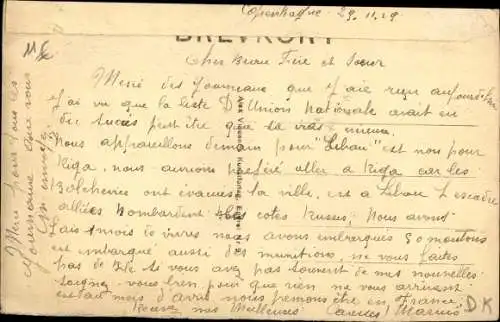 Copenhague - 29.11.19
BREVKORT
Cher Beau Frère et Soeur
Merci des journeaux que j'ai reçu aujourd'hui
J'ai vu que la liste D'Union Nationale avait eu
du succès peut être que la vie mieux.
Nous appareillons demain pour "Libau" est non pour
Riga, nous aurions préféré aller a Riga car les
Bolchevics ont évacués la ville, est a Libau L'escadre
alliées Bombardent les cotes Russes, Nous avons
mois de vivres nous avons embarqués 50 moutons
est embarqué aussi des munitions, ne vous faites
pas de bile si vous avez pas souvent de mes nouvelles
Soignez vous bien pour que rien ne vous arrivent
mois d'avril nous en France,
Recevez mes Meilleures Caresses Marius
Merci pour tous les
journeaux que vous
envoyez
DK